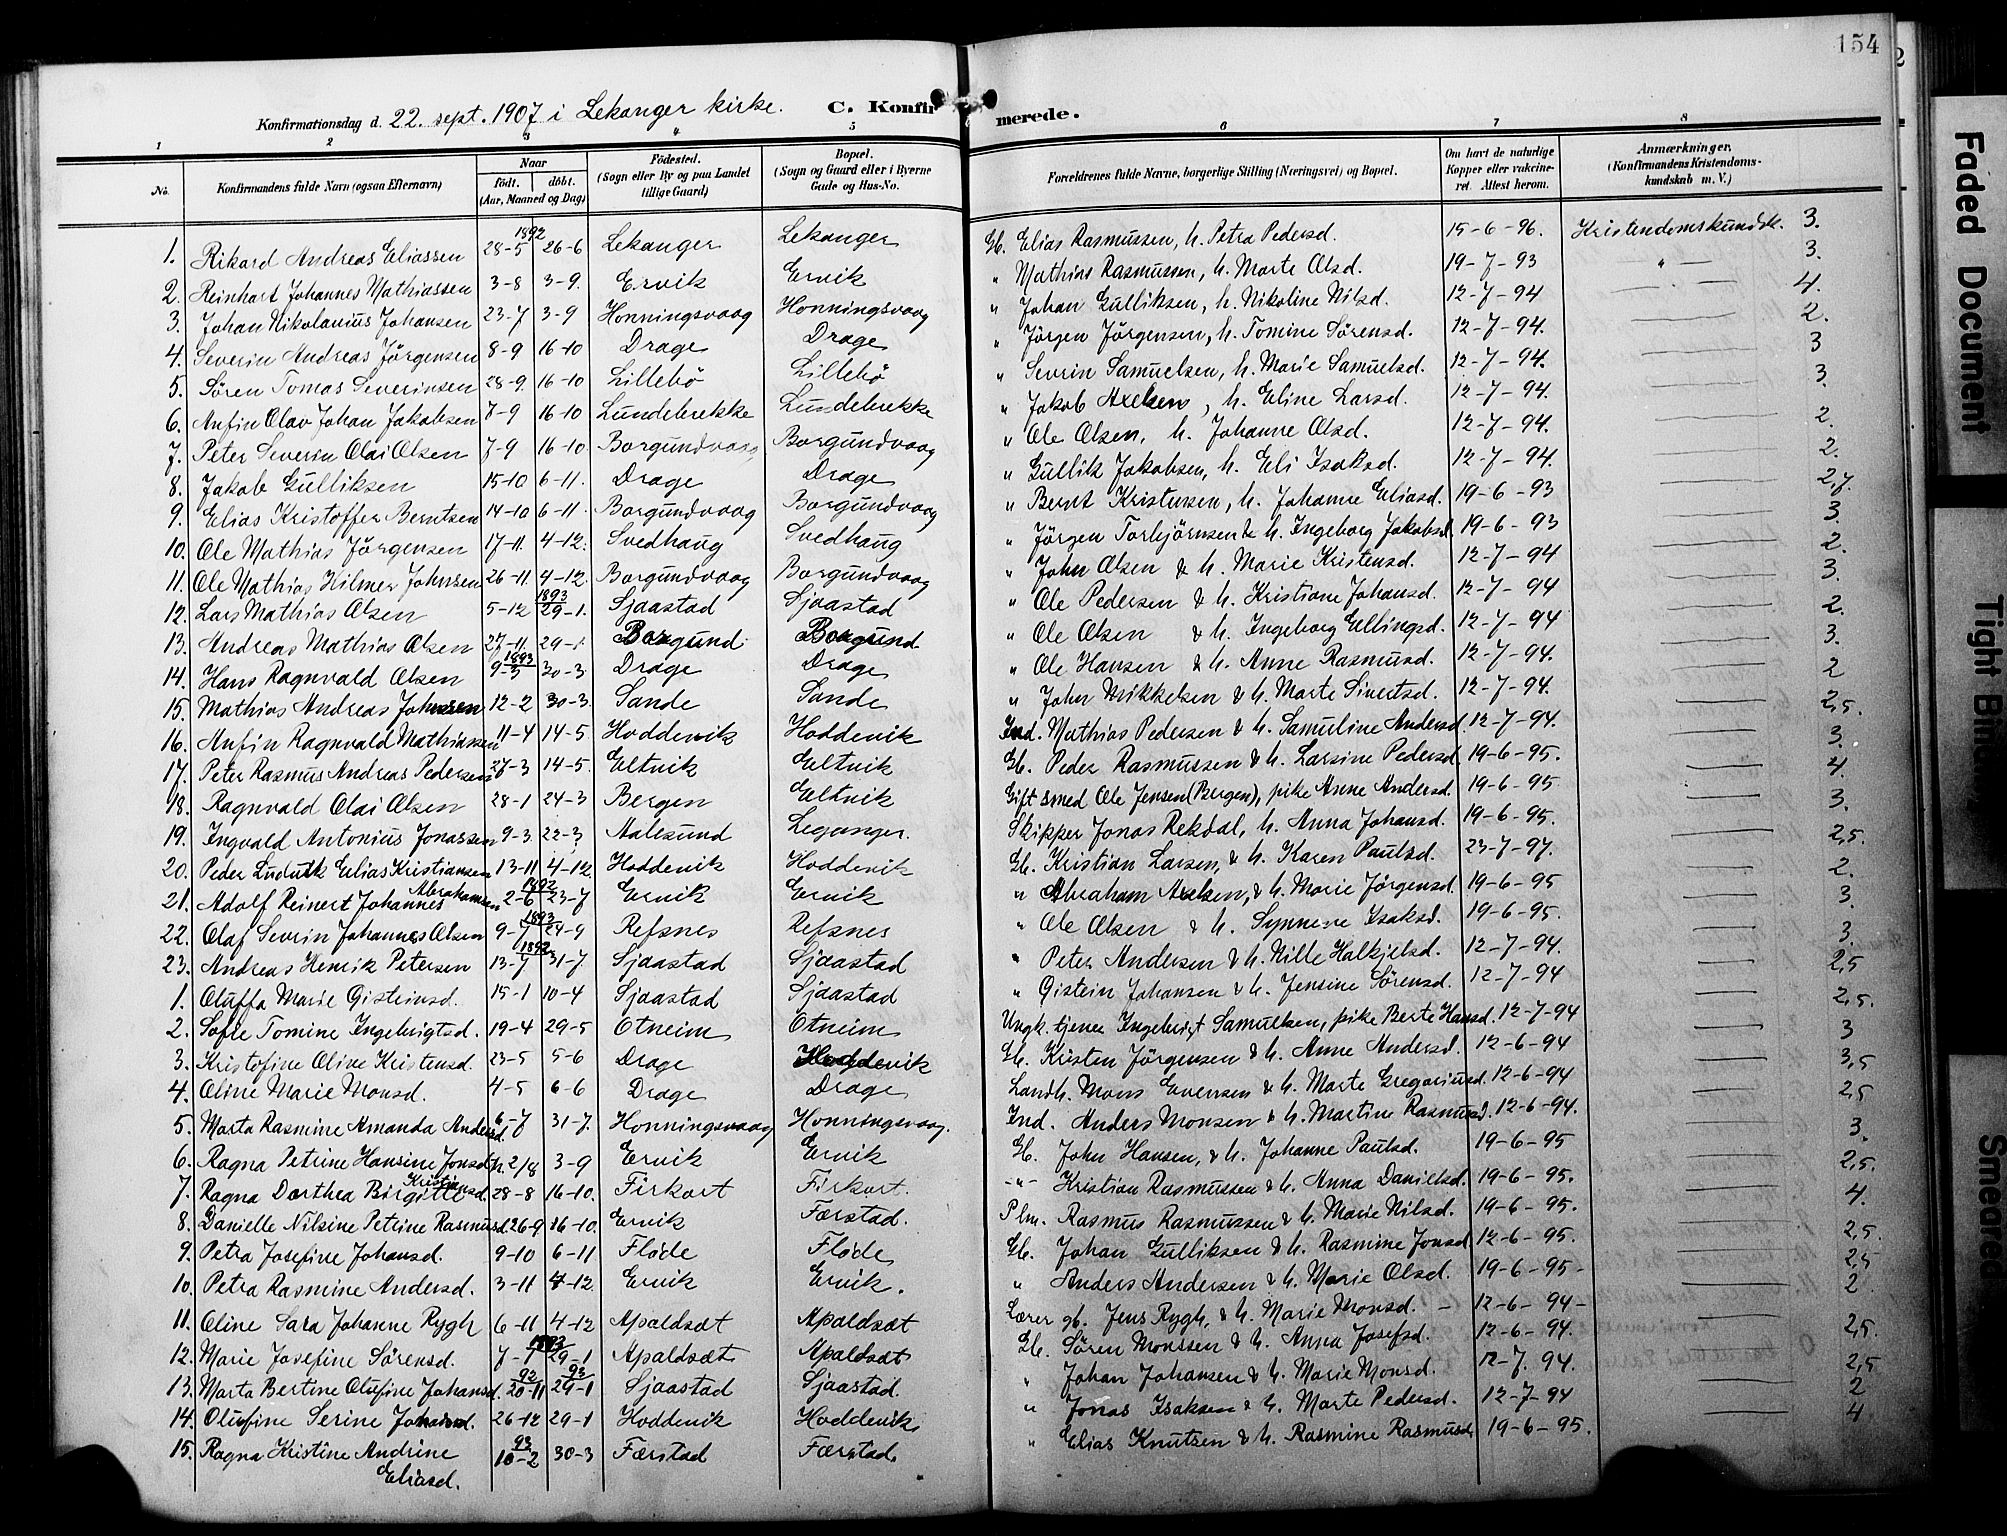 154
Konfirmationsdag d. 22. sept. 1907 i Lekanger kirke. C. Konfirmerede.
1 2 3 4 5 6 7 8
No. Konfirmandens fulde Navn (ogsaa Efternavn) Naar födt. döbt. (Aar, Maaned og Dag) Födested. (Sogn eller By og paa Landet tillige Gaard) Bopæl. (Sogn og Gaard eller i Byerne Gade og Hus-No. Forældrenes fulde Navne, borgerlige Stilling (Næringsvei) og Bopæl. Om havt de naturlige Kopper eller vakcineret. Attest herom. Anmærkninger. (Konfirmandens Kristendomskundskab m. V.)
1892
1. Rikard Andreas Eliassen 28-5 26-6 Lekanger Lekanger Gb. Elias Rasmussen, h. Petra Pedersd. 15-6-96. Kristendomskundsk. 3.
2. Reinhart Johannes Mathiassen 3-8 3-9. Ervik Ervik " Mathias Rasmussen, h. Marte Olsd. 19-7-93 — " — 3.
3. Johan Nikolanius Johansen 23-7 3-9 Honningsvaag Honningsvaag " Johan Gulliksen, h. Nikoline Nilsd. 12-7-94 4.
4. Severin Andreas Jörgensen 8-9 16-10 Drage Drage " Jörgen Jörgensen, h. Tomine Sörensd. 12-7-94. 2.
5. Sören Tomas Severinsen 28-9. 16-10 Lillebö Lillebö " Sevrin Samuelsen, h. Marie Samuelsd. 12-7-94. 3
6. Anfin Olav Johan Jakobsen 7-9 16-10 Lundebrekke Lundebrekke " Jakob Axelsen, h. Eline Larsd. 12-7-94. 3.
7. Peter Severin Olai Olsen 7-9 16-10 Borgundvaag Borgundvaag " Ole Olsen, h. Johanne Olsd. 12-7-94. 2.
8. Jakob Gulliksen 15-10 6-11. Drage Drage " Gullik Jakobsen, h. Eli Isaksd. 12-7-94. 2.
9. Elias Kristoffer Berntsen 14-10 6-11. Borgundvaag Borgundvaag " Bernt Kristensen, h. Johanne Eliasd. 19-6-93 2,7.
10. Ole Mathias Jörgensen 17-11. 4-12. Svedhaug Svedhaug " Jörgen Torbjörnsen & h. Ingeborg Jakobsd. 19-6-93 3.
11. Ole Mathias Hilmer Johnsen 26-11. 4-12. Borgundvaag Borgundvaag " John Olsen & h. Marie Kristensd. 12-7-94 2.
1893
12. Lars Mathias Olsen 5-12 29-1. Sjaastad Sjaastad " Ole Pedersen & h. Kristiane Johansd. 12-7-94 3.
13. Andreas Mathias Olsen 27-11. 29-1. Borgund Borgund " Ole Olsen & h. Ingeborg Ellingsd. 12-7-94 2.
1893
14. Hans Ragnvald Olsen 9-3 30-3 Drage Drage " Ole Hansen & h. Anne Rasmusd. 12-7-94. 3.
15. Mathias Andreas Johnsen 12-2 30-3. Sande Sande " John Mikkelsen & h. Marte Sivertsd. 12-7-94. 2
16. Anfin Ragnvald Mathiassen 11-4 14-5. Hoddevik Hoddevik Ind. Mathias Pedersen & h. Samuline Andersd. 12-7-94. 2,5.
17. Peter Rasmus Andreas Pedersen 27-3 14-5. Eltvik Eltvik Gb. Peder Rasmussen & h. Larsine Pedersd. 19-6-95. 3.
18. Ragnvald Olai Olsen 28-1 24-3 Bergen Eltvik Gift smed Ole Jensen (Bergen), pike Anne Andersd. 19-6-95 4.
19. Ingvald Antonius Jonassen 9-3. 22-3 Aalesund Leganger. Skipper Jonas Rekdal, h. Anna Johansd. 19-6-95. 3.
20. Peder Ludvik Elias Kristiansen 13-11 4-12. Hoddevik Hoddevik Gb. Kristian Larsen, & h. Karen Paulsd. 23-7-97. 2,5.
1892
21. Adolf Reinert Johannes Abrahamsen 2-6 23-7 Ervik Ervik " Abraham Axelsen, & h. Marie Jörgensd. 19-6-95 2.
1893
22. Olaf Severin Johannes Olsen 9-7 24-9 Refsnes Refsnes " Ole Olsen & h. Synneve Isaksd. 19-6-95. 3.
1892
23. Andreas Henrik Petersen 13-7 31-7. Sjaastad Sjaastad " Peter Andersen & h. Nille Halkjelsd. 12-7-94. 3.
1. Oluffa Marie Gisteinsd. 15-1 10-4 Sjaastad Sjaastad " Gistein Johansen & h. Jensine Sörensd. 12-7-94 2,5
2. Sofie Tomine Ingebrigtsd. 19-4 29-5 Otneim Otneim Ungk. tjener Ingebrigt Samuelsen, pike Berte Hansd. 12-7-94 2,5.
3. Kristofine Olive Kristensd. 23-5 5-6 Drage Hoddevik Gb. Kristen Jörgensen & h. Anne Andersd. 12-6-94 3
4. Oline Marie Monsd. 4-5 6-6 Drage Drage Landh. Mons Evensen & h. Marte Gregoriusd. 12-6-94 3,5
5. Marta Rasmine Amanda Andersd. 6-7 31-7. Honningsvaag Honningsvaag. Ind. Anders Monsen & h. Martine Rasmusd. 12-6-94. 2,5
6. Ragna Petrine Hansine Jonsdtr. 2/8 3-9 Ervik Ervik Gb. John Hansen, & h. Johanne Paulsd. 19-6-95 3.
7. Ragna Dorthea Birgitte Kristiansd. 28-8 16-10. Firkort Firkort. -"- Kristian Rasmussen & h. Anna Danielsd. 19-6-95. 2,5.
8. Danielle Nilsine Petrine Rasmusd. 26-9 16-10. Ervik Færstad. Plm. Rasmus Rasmussen & h. Marie Nilsd. 19-6-95. 4.
9. Petra Josefine Johansd. 9-10 6-11 Flöde Flöde Gb. Johan Gulliksen & h. Rasmine Jonsd. 12-6-95. 2,5.
10. Petra Rasmine Andersd. 3-11 4-12. Ervik Ervik. " Anders Andersen & h. Marie Olsd. 19-6-95- 2,5
11. Oline Sara Johanne Rygh 6-11 4-12 Apaldsæt Apaldsæt Lærer gb. Jens Rygh, & h. Marie Monsd. - 12-6-94- 2
1893
12. Marie Josefine Sörensd. 7-1 29-1 Apaldsæt Apaldsæt Gb. Sören Monssen & h. Anna Josefsd. 12-6-94. 2,5.
92 93
13. Marta Bertine Olufine Johansd. 20-11 29-1 Sjaastad Sjaastad. " Johan Johansen & h. Marie Monsd. 12-7. 94. 2,5
14. Olufine Serine Johansd. 26-12 29-1 Hoddevik Hoddevik " Jonas Isaksen & h. Marte Pedersd. 12-7-94 2
93
15. Ragna Kristine Andrine Eliasd. 10-2 30-3 Færstad Færstad. " Elias Knutsen & h. Rasmine Rasmusd. 19-6-95. 4
Faded Document
Tight Bin
Smeared